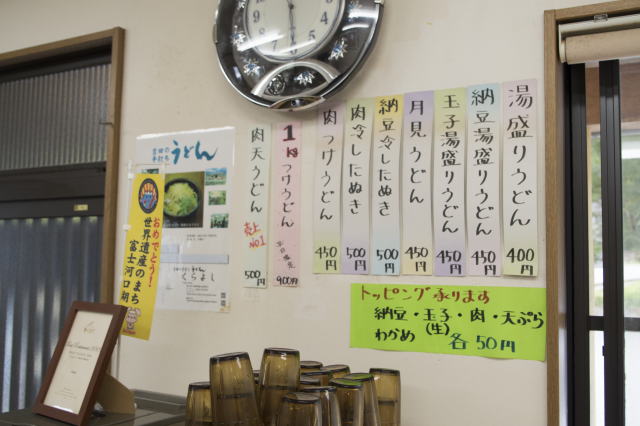 湯盛りうどん
400円
納豆湯盛りうどん
450円
玉子湯盛りうどん
450円
月見うどん
450円
納豆冷したぬき
500円
肉冷したぬき
500円
肉つけうどん
450円
1kgつけうどん
900円
肉天うどん
売上
No.1
500円
トッピング承ります
納豆・玉子・肉・天ぷら
(生)
わかめ 各50円
うどん
くらよし
おめでとう!
世界遺産のまち
富士河口湖